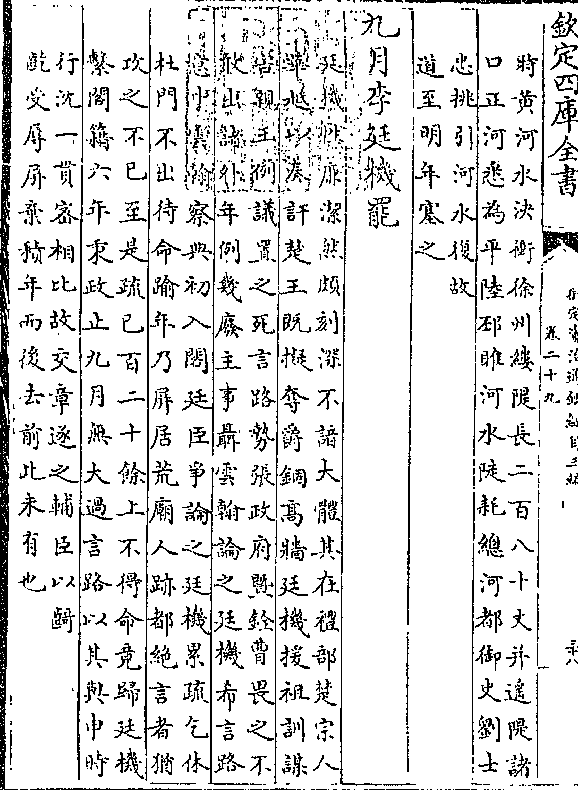 欽定四庫全書
卷二十九
時黃河水決衝徐州縷隄長二百八十丈并遙隄諸
口正河悉為平陸邳睢河水陡耗總河都御史劉士
忠挑引河水復故
道至明年塞之
九月李廷機罷
廷機雖廉潔然頗刻深不諳大體其在禮部楚宗人
華越以奏訐楚王既擬奪爵錮高牆廷機援祖訓謀
害親王例議置之死言路勢張政府暨銓曹畏之不
敢出諸外年例幾廢主事聶雲翰論之廷機希言路
意中雲翰察典初入閣廷臣爭論之廷機累疏乞休
杜門不出待命踰年乃屏居荒廟人跡都絕言者猶
攻之不已至是疏已百二十餘上不得命竟歸廷機
繫閣籍六年秉政止九月無大過言路以其與申時
行沈一貫密相比故交章逐之輔臣以齮
齕受辱屏棄積年而後去前此未有也